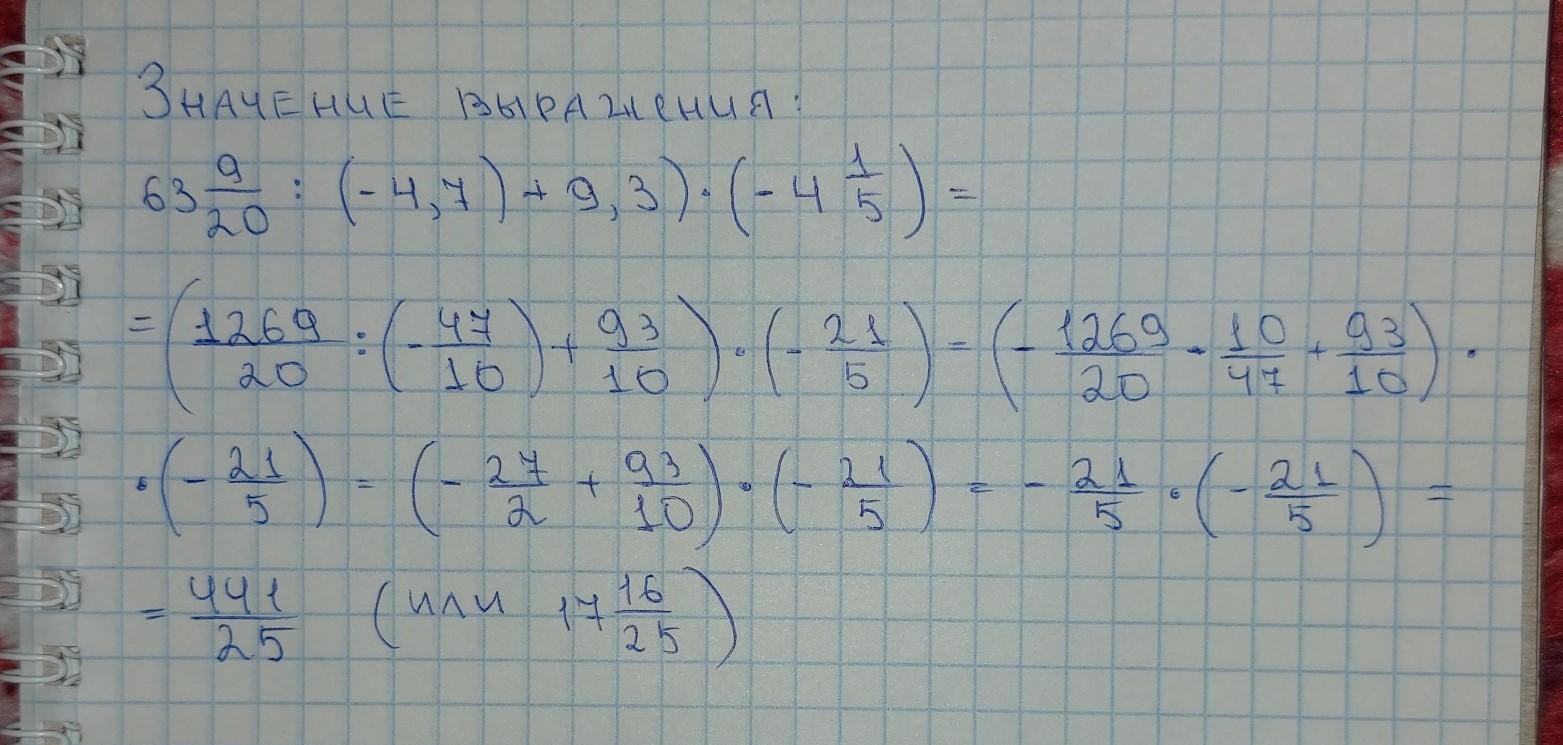 Значение выражения:
63 9/20 : (-4,7) + 9,3) · (-4 1/5) =
= (1269/20 : (-47/10) + 93/10) · (-21/5) = (-1269/20 · 10/47 + 93/10) ·
· (-21/5) = (-27/2 + 93/10) · (-21/5) = -21/5 · (-21/5) =
= 441/25 (или 17 16/25)